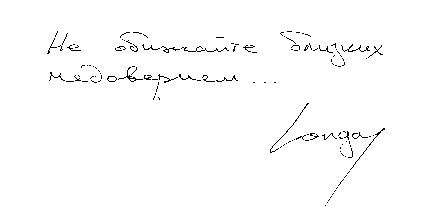 Не обижайте близких
недоверием...
Longa